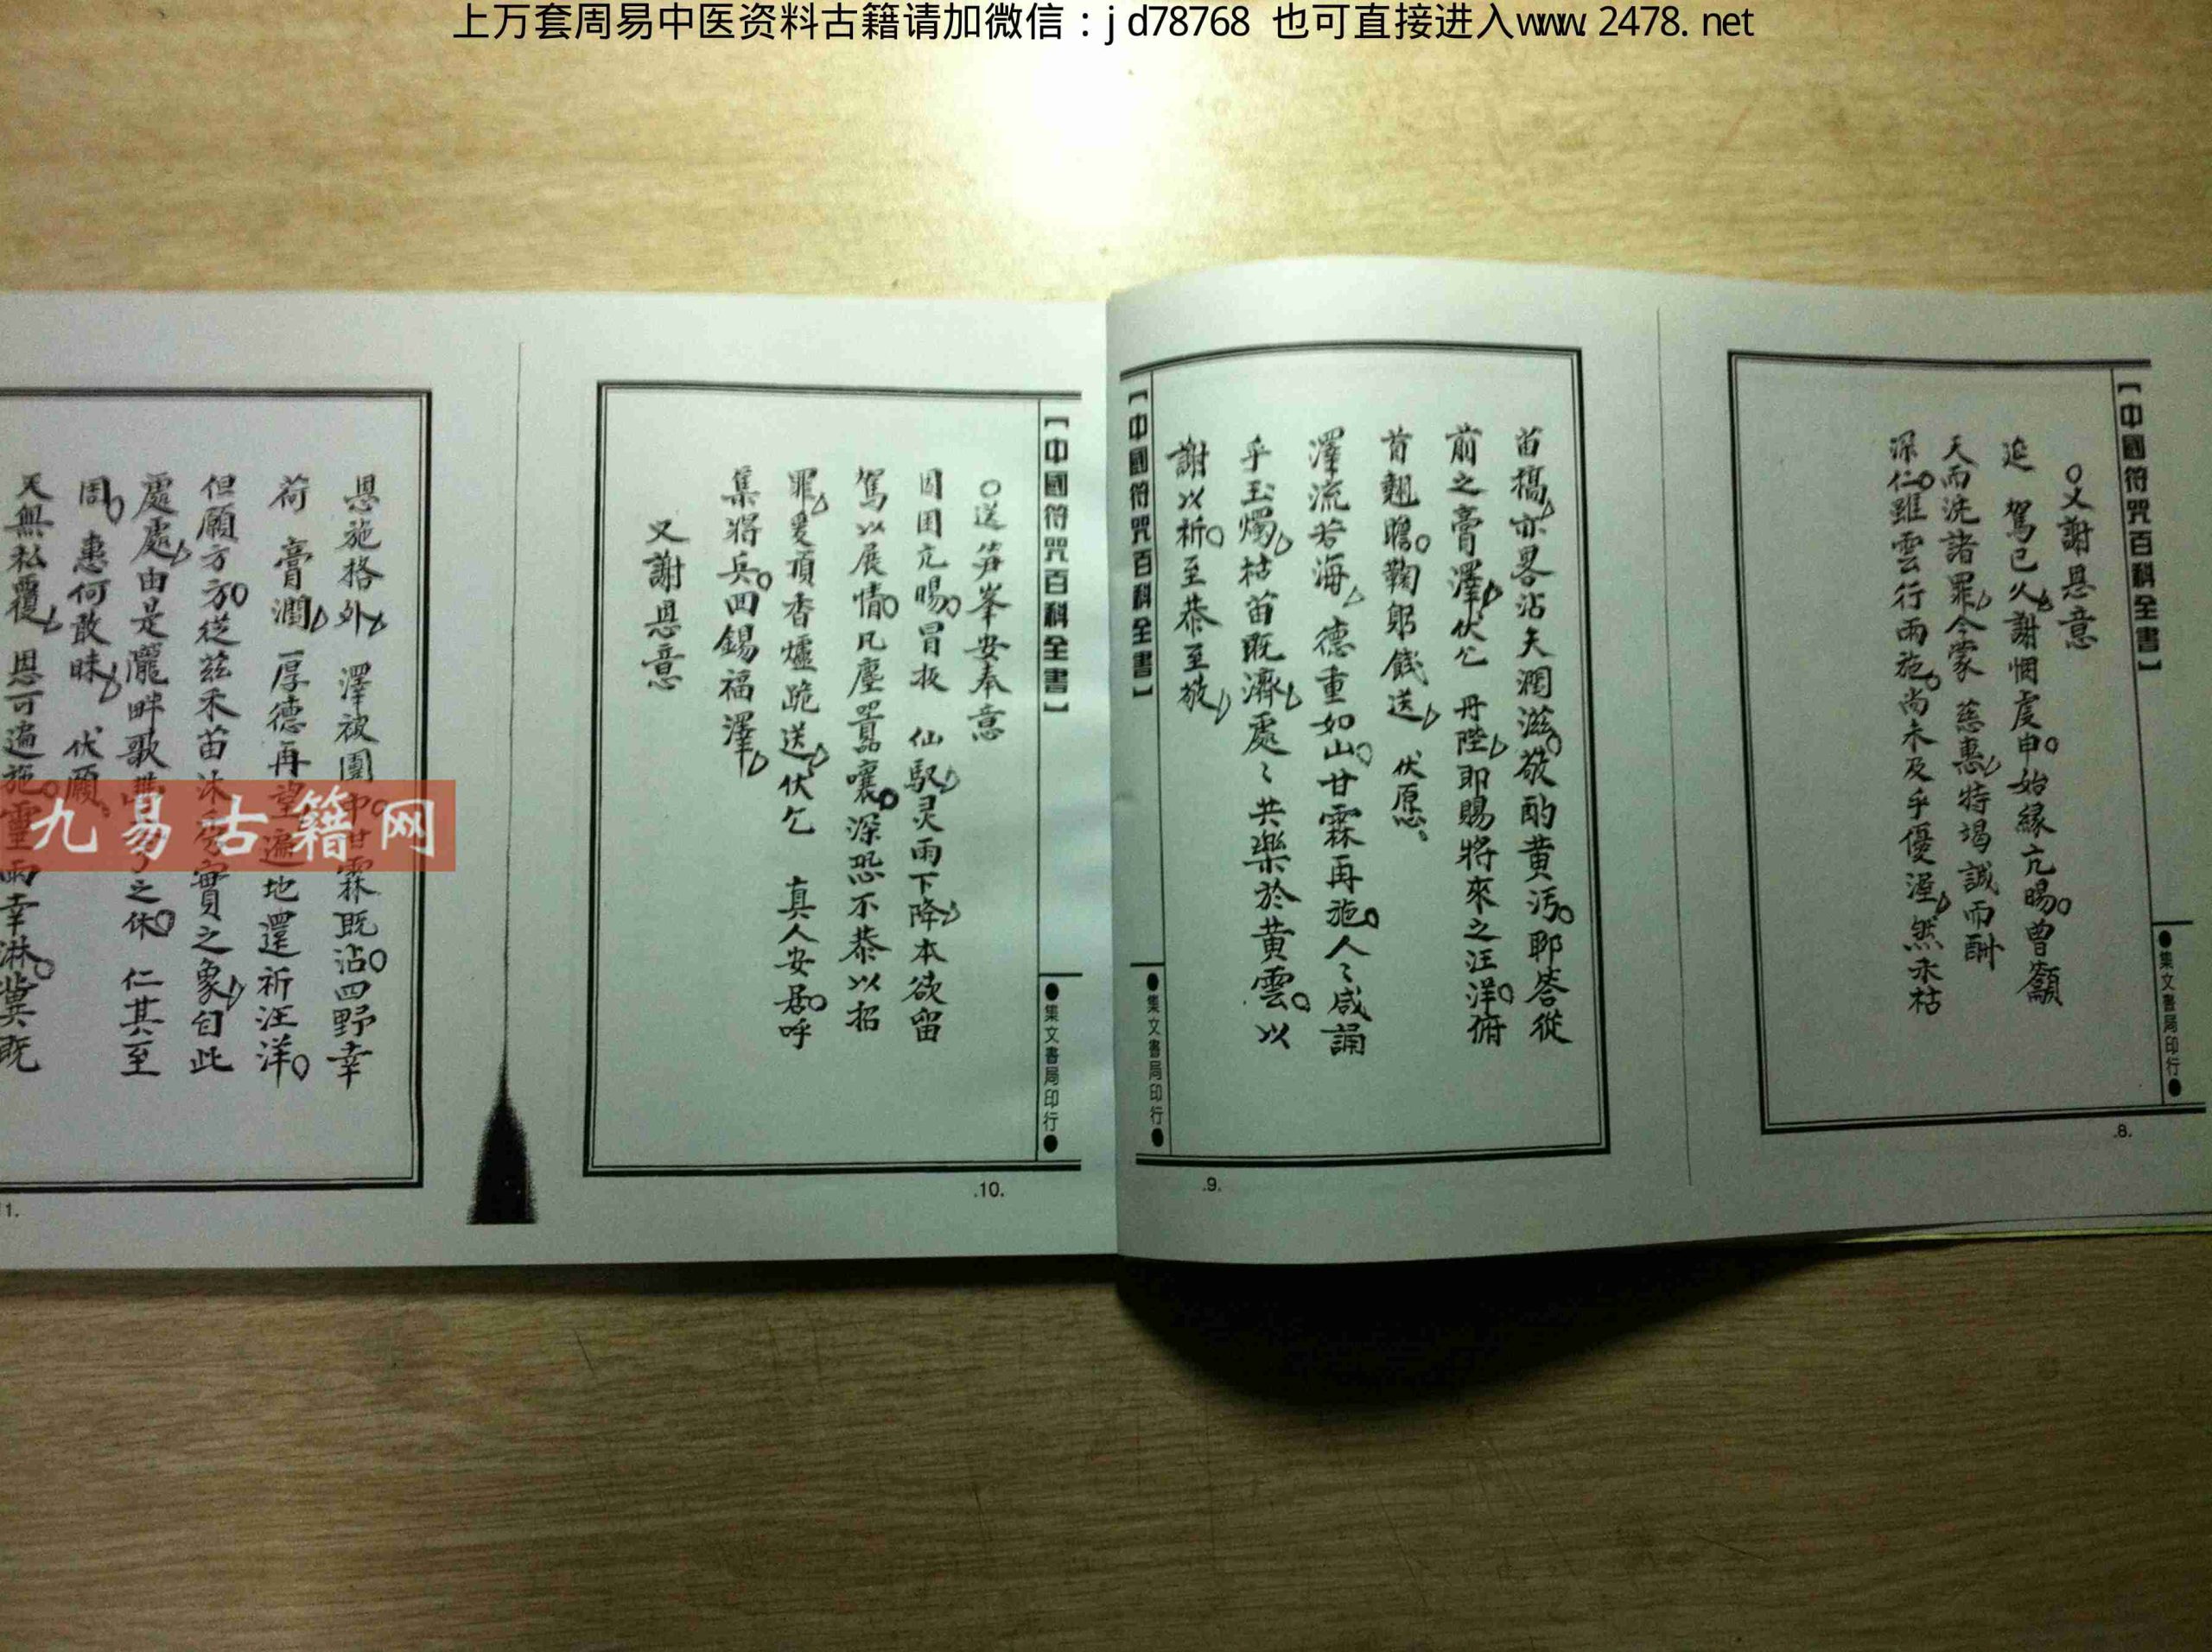 上万套周易中医资料古籍请加微信：jd78768 也可直接进入www.2478.net
【中國符咒百科全書】
●集文書局印行●
.8.
○又謝恩意
延 駕已久謝悃虔申始緣亢暘曾籲
天而洗諸罪今蒙 慈惠特竭誠而酧
深仁雖雲行雨施尚未及乎優渥然禾枯
苗槁亦畧沾天潤滋敬酌黄汚聊答從
前之膏澤伏乞 丹陛即賜將來之汪洋俯
首翹瞻鞠躬餞送 伏愿
澤流若海 德重如山甘霖再施人〻咸誦
乎玉燭枯苗既濟處〻共樂於黄雲以
謝以祈至恭至敬
【中國符咒百科全書】
●集文書局印行●
.9.
【中國符咒百科全書】
●集文書局印行●
.10.
○送笋峯安奉意
因亢暘冒扳 仙馭灵雨下降本欲留
駕以展情凡塵嚣嚷深恐不恭以招
罪爰頂香爐跪送伏乞 真人安居呼
集將兵四錫福澤
又謝恩意
恩施格外 澤被圍中甘霖既沾四野幸
荷 膏潤 厚德再望遍地還祈汪洋
但願方方從茲禾苗沐實之象自此
處處由是隴畔歌之休 仁其至
周 惠何敢昧 伏願
天無私覆 恩可遍施靈雨幸淋冀既
1.
九易古籍网